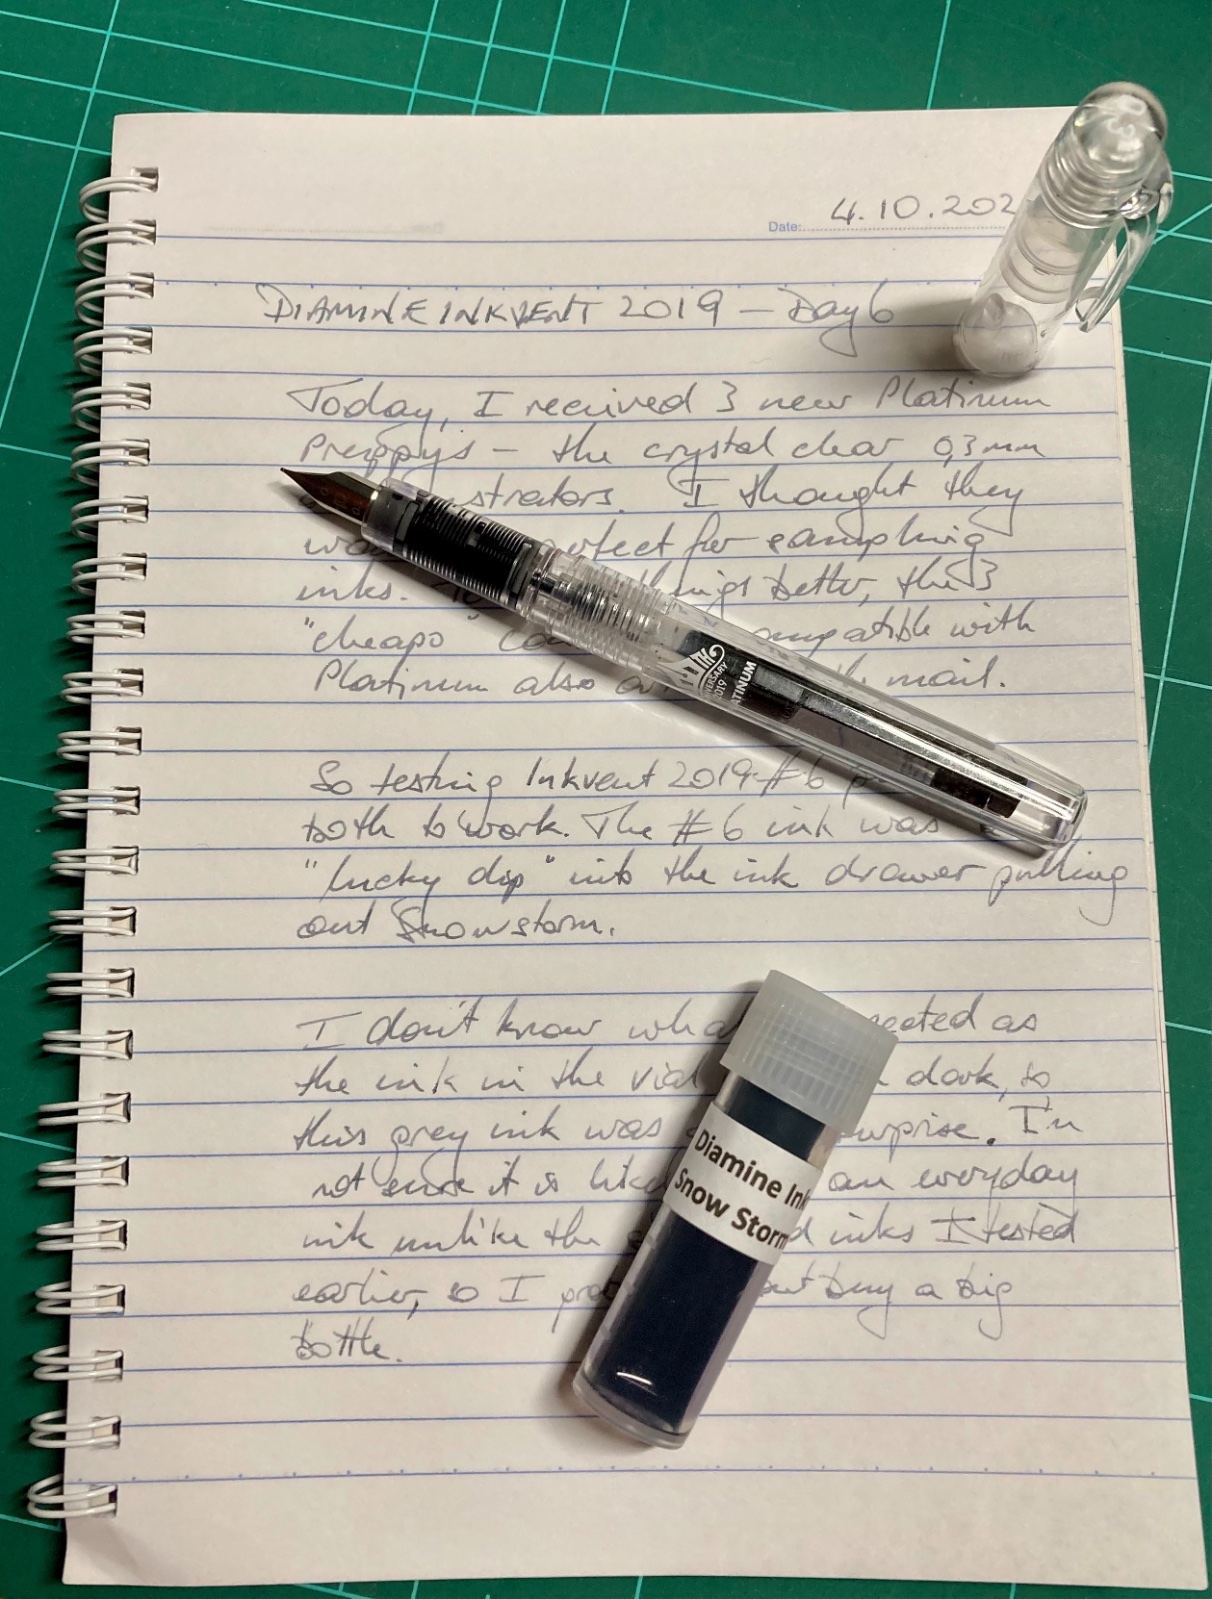 Date: 4.10.202
DIAMINE INKVENT 2019 – Day 6
Today, I received 3 new Platinum
Preppys – the crystal clear 0,3 mm
strators. I thought they
for sampling
inks. better, the 3
"cheapo" with
Platinum also mail.
So testing Inkvent 2019 #6
both to work. The #6 ink was
"lucky dip" into the ink drawer pulling
out Snowstorm.
I don't know as
the ink in the vial dark, so
this grey ink was I'm
not sure it is an everyday
ink unlike the inks I tested
earlier, so I buy a big
bottle.
TH
2019
Diamine Ink
Snow Storm